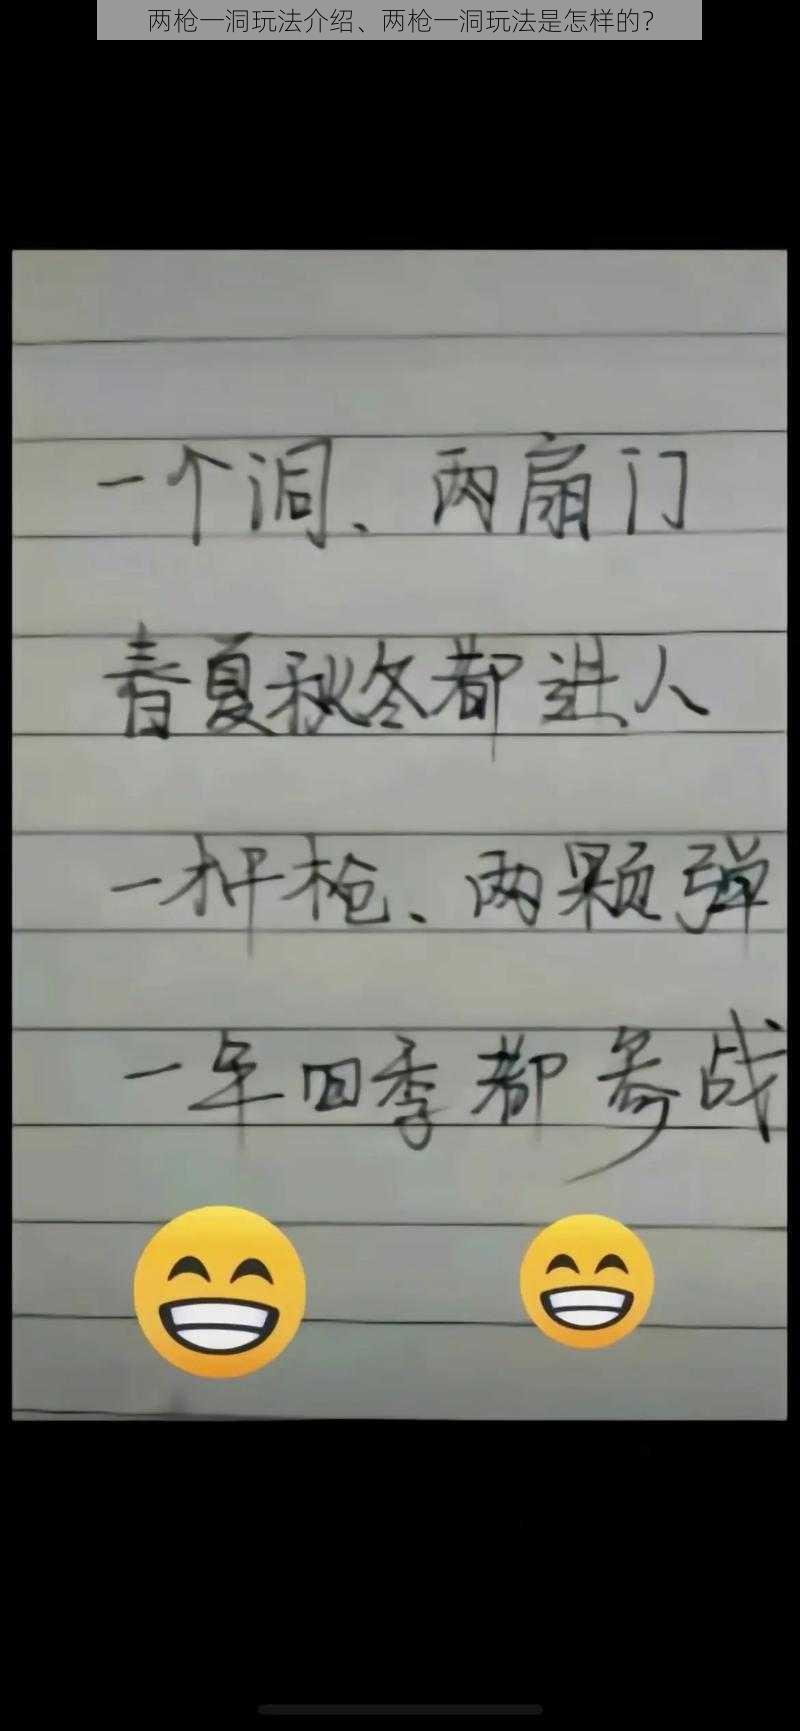 两枪一洞玩法介绍、两枪一洞玩法是怎样的？
一个洞、两扇门
春夏秋冬都进人
一杆枪、两颗弹
一年四季都参战